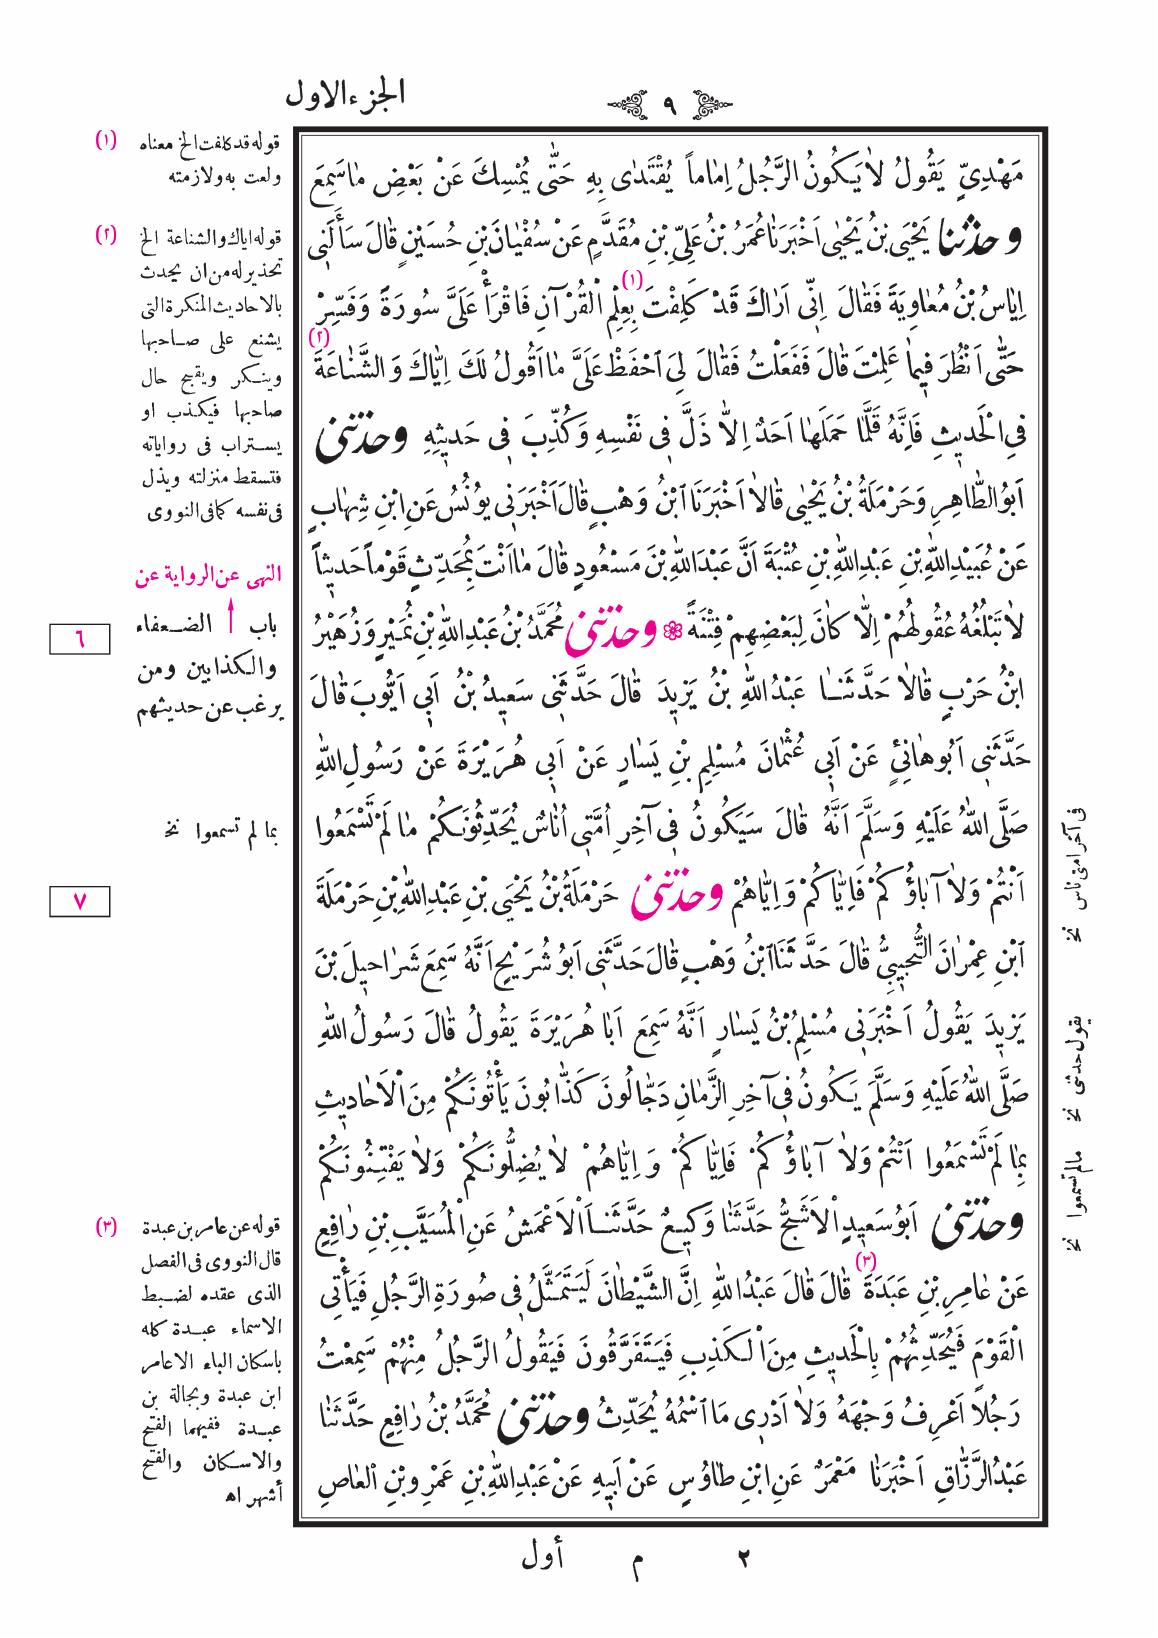 الجزء الاول
٩
مَهْدِيٍّ يَقُولُ لَا يَكُونُ الرَّجُلُ اِمَاماً يُقْتَدٰى بِهِ حَتّٰى يُمْسِكَ عَنْ بَعْضِ مَا سَمِعَ
وحدثنا يَحْيَى بْنُ يَحْيٰى اَخْبَرَنَا عُمَرُ بْنُ عَلِىِّ بْنِ مُقَدَّمٍ عَنْ سُفْيَانَ بْنِ حُسَيْنٍ قَالَ سَأَلَنِى
اِيَاسُ بْنُ مُعَاوِيَةَ فَقَالَ اِنِّى اَرَاكَ قَدْ كَلِفْتَ (١) بِعِلْمِ الْقُرْآنِ فَاقْرَأْ عَلَىَّ سُورَةً وَفَسِّرْ
حَتّٰى اَنْظُرَ فِيمَا عَلِمْتَ قَالَ فَفَعَلْتُ فَقَالَ لِىَ احْفَظْ عَلَىَّ مَا اَقُولُ لَكَ اِيَّاكَ وَالشَّنَاعَةَ (٢)
فِى الْحَدِيثِ فَاِنَّهُ قَلَّمَا حَمَلَهَا اَحَدٌ اِلاَّ ذَلَّ فِى نَفْسِهِ وَكُذِّبَ فِى حَدِيثِهِ وحدثنى
اَبُو الطَّاهِرِ وَحَرْمَلَةُ بْنُ يَحْيٰى قَالَا اَخْبَرَنَا ابْنُ وَهْبٍ قَالَ اَخْبَرَنِى يُونُسُ عَنِ ابْنِ شِهَابٍ
عَنْ عُبَيْدِ اللّٰهِ بْنِ عَبْدِ اللّٰهِ بْنِ عُتْبَةَ اَنَّ عَبْدَ اللّٰهِ بْنَ مَسْعُودٍ قَالَ مَا اَنْتَ بِمُحَدِّثٍ قَوْماً حَدِيثاً
لَا تَبْلُغُهُ عُقُولُهُمْ اِلاَّ كَانَ لِبَعْضِهِمْ فِتْنَةً ❀ وحدثنى مُحَمَّدُ بْنُ عَبْدِ اللّٰهِ بْنِ نُمَيْرٍ وَزُهَيْرُ
ابْنُ حَرْبٍ قَالَا حَدَّثَنَا عَبْدُ اللّٰهِ بْنُ يَزِيدَ قَالَ حَدَّثَنِى سَعِيدُ بْنُ اَبِى اَيُّوبَ قَالَ
حَدَّثَنِى اَبُو هَانِئٍ عَنْ اَبِى عُثْمَانَ مُسْلِمِ بْنِ يَسَارٍ عَنْ اَبِى هُرَيْرَةَ عَنْ رَسُولِ اللّٰهِ
صَلَّى اللّٰهُ عَلَيْهِ وَسَلَّمَ اَنَّهُ قَالَ سَيَكُونُ فِى آخِرِ اُمَّتِى اُنَاسٌ يُحَدِّثُونَكُمْ مَا لَمْ تَسْمَعُوا
اَنْتُمْ وَلَا آبَاؤُكُمْ فَاِيَّاكُمْ وَاِيَّاهُمْ وحدثنى حَرْمَلَةُ بْنُ يَحْيَى بْنِ عَبْدِ اللّٰهِ بْنِ حَرْمَلَةَ
ابْنِ عِمْرَانَ التُّجِيبِىُّ قَالَ حَدَّثَنَا ابْنُ وَهْبٍ قَالَ حَدَّثَنِى اَبُو شُرَيْحٍ اَنَّهُ سَمِعَ شَرَاحِيلَ بْنَ
يَزِيدَ يَقُولُ اَخْبَرَنِى مُسْلِمُ بْنُ يَسَارٍ اَنَّهُ سَمِعَ اَبَا هُرَيْرَةَ يَقُولُ قَالَ رَسُولُ اللّٰهِ
صَلَّى اللّٰهُ عَلَيْهِ وَسَلَّمَ يَكُونُ فِى آخِرِ الزَّمَانِ دَجَّالُونَ كَذَّابُونَ يَأْتُونَكُمْ مِنَ الْاَحَادِيثِ
بِمَا لَمْ تَسْمَعُوا اَنْتُمْ وَلَا آبَاؤُكُمْ فَاِيَّاكُمْ وَاِيَّاهُمْ لَا يُضِلُّونَكُمْ وَلَا يَفْتِنُونَكُمْ
وحدثنى اَبُو سَعِيدٍ الْاَشَجُّ حَدَّثَنَا وَكِيعٌ حَدَّثَنَا الْاَعْمَشُ عَنِ الْمُسَيَّبِ بْنِ رَافِعٍ
عَنْ عَامِرِ بْنِ عَبَدَةَ (٣) قَالَ قَالَ عَبْدُ اللّٰهِ اِنَّ الشَّيْطَانَ لَيَتَمَثَّلُ فِى صُورَةِ الرَّجُلِ فَيَأْتِى
الْقَوْمَ فَيُحَدِّثُهُمْ بِالْحَدِيثِ مِنَ الْكَذِبِ فَيَتَفَرَّقُونَ فَيَقُولُ الرَّجُلُ مِنْهُمْ سَمِعْتُ
رَجُلاً اَعْرِفُ وَجْهَهُ وَلَا اَدْرِى مَا اسْمُهُ يُحَدِّثُ وحدثنى مُحَمَّدُ بْنُ رَافِعٍ حَدَّثَنَا
عَبْدُ الرَّزَّاقِ اَخْبَرَنَا مَعْمَرٌ عَنِ ابْنِ طَاوُسٍ عَنْ اَبِيهِ عَنْ عَبْدِ اللّٰهِ بْنِ عَمْرِو بْنِ الْعَاصِ
(١) قوله قد كلفت الخ معناه
ولعت به ولازمته
(٢) قوله اياك والشناعة الخ
تحذير له من ان يحدث
بالاحاديث المنكرة التى
يشنع على صاحبها
وينكر ويقبح حال
صاحبها فيكذب او
يستراب فى رواياته
فتسقط منزلته ويذل
فى نفسه كما فى النووى
النهى عن الرواية عن
باب الضعفاء
٦
والكذابين ومن
يرغب عن حديثهم
بما لم تسمعوا نخ
٧
(٣) قوله عن عامر بن عبدة
قال النووى فى الفصل
الذى عقده لضبط
الاسماء عبدة كله
باسكان الباء الا عامر
ابن عبدة وبجالة بن
عبدة ففيهما الفتح
والاسكان والفتح
أشهر اه
فى آخر امتى ناس نخ
يقول حدثنى نخ
مالم تسمعوا نخ
٢ م أول